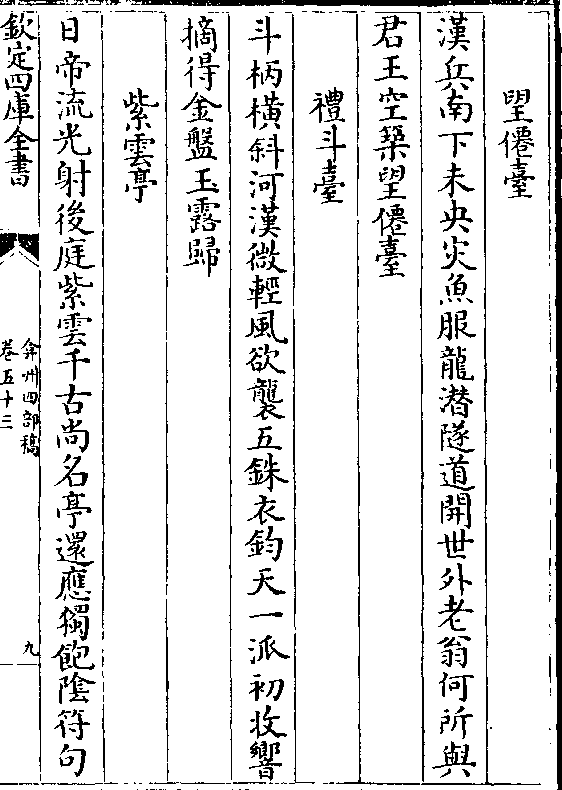 望僊臺
漢兵南下未央災魚服龍潛隧道開世外老翁何所與
君王空築望僊臺
禮斗臺
斗柄橫斜河漢微輕風欲襲五銖衣鈞天一派初收響
摘得金盤玉露歸
紫雲亭
日帝流光射後庭紫雲千古尚名亭還應獨飽陰符句
欽定四庫全書
弇州四部稿
卷五十三
九